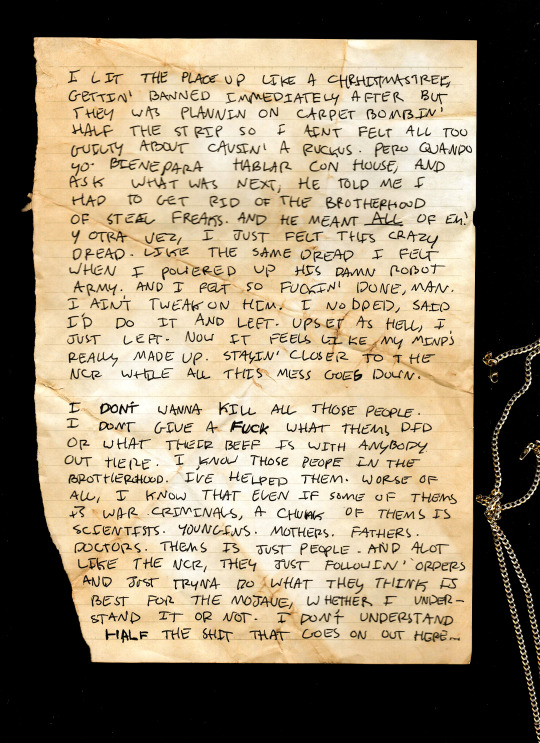 I LIT THE PLACE UP LIKE A CHRHISTMASTREE,
GETTIN' BANNED IMMEDIATELY AFTER BUT
THEY WAS PLANNIN ON CARPET BOMBIN'
HALF THE STRIP SO I AINT FELT ALL TOO
GUILTY ABOUT CAUSIN' A RUCKUS. PERO QUANDO
YO. BIENEPARA HABLAR CON HOUSE, AND
ASK WHAT WAS NEXT, HE TOLD ME I
HAD TO GET RID OF THE BROTHERHOOD
OF STEEL FREAKS. AND HE MEANT ALL OF EM!
Y OTRA VEZ, I JUST FELT THIS CRAZY
DREAD. LIKE THE SAME DREAD I FELT
WHEN I POWERED UP HIS DAMN ROBOT
ARMY. AND I FELT SO FUCKIN' DONE, MAN.
I AIN'T TWEAK ON HIM. I NODDED, SAID
I'D DO IT AND LEFT. UPSET AS HELL, I
JUST LEFT. NOW IT FEELS LIKE MY MIND'S
REALLY MADE UP. STAYIN' CLOSER TO THE
NCR WHILE ALL THIS MESS GOES DOWN.
I DON'T WANNA KILL ALL THOSE PEOPLE.
I DONT GIVE A FUCK WHAT THEMS DID
OR WHAT THEIR BEEF IS WITH ANYBODY
OUT HERE. I KNOW THOSE PEOPE IN THE
BROTHERHOOD. IVE HELPED THEM. WORSE OF
ALL, I KNOW THAT EVEN IF SOME OF THEMS
IS WAR CRIMINALS, A CHUNK OF THEMS IS
SCIENTISTS. YOUNGINS. MOTHERS. FATHERS.
DOCTORS. THEMS IS JUST PEOPLE. AND ALOT
LIKE THE NCR, THEY JUST FOLLOWIN' ORDERS
AND JUST TRYNA DO WHAT THEY THINK IS
BEST FOR THE MOJAVE, WHETHER I UNDER-
STAND IT OR NOT. I DON'T UNDERSTAND
HALF THE SHIT THAT GOES ON OUT HERE...